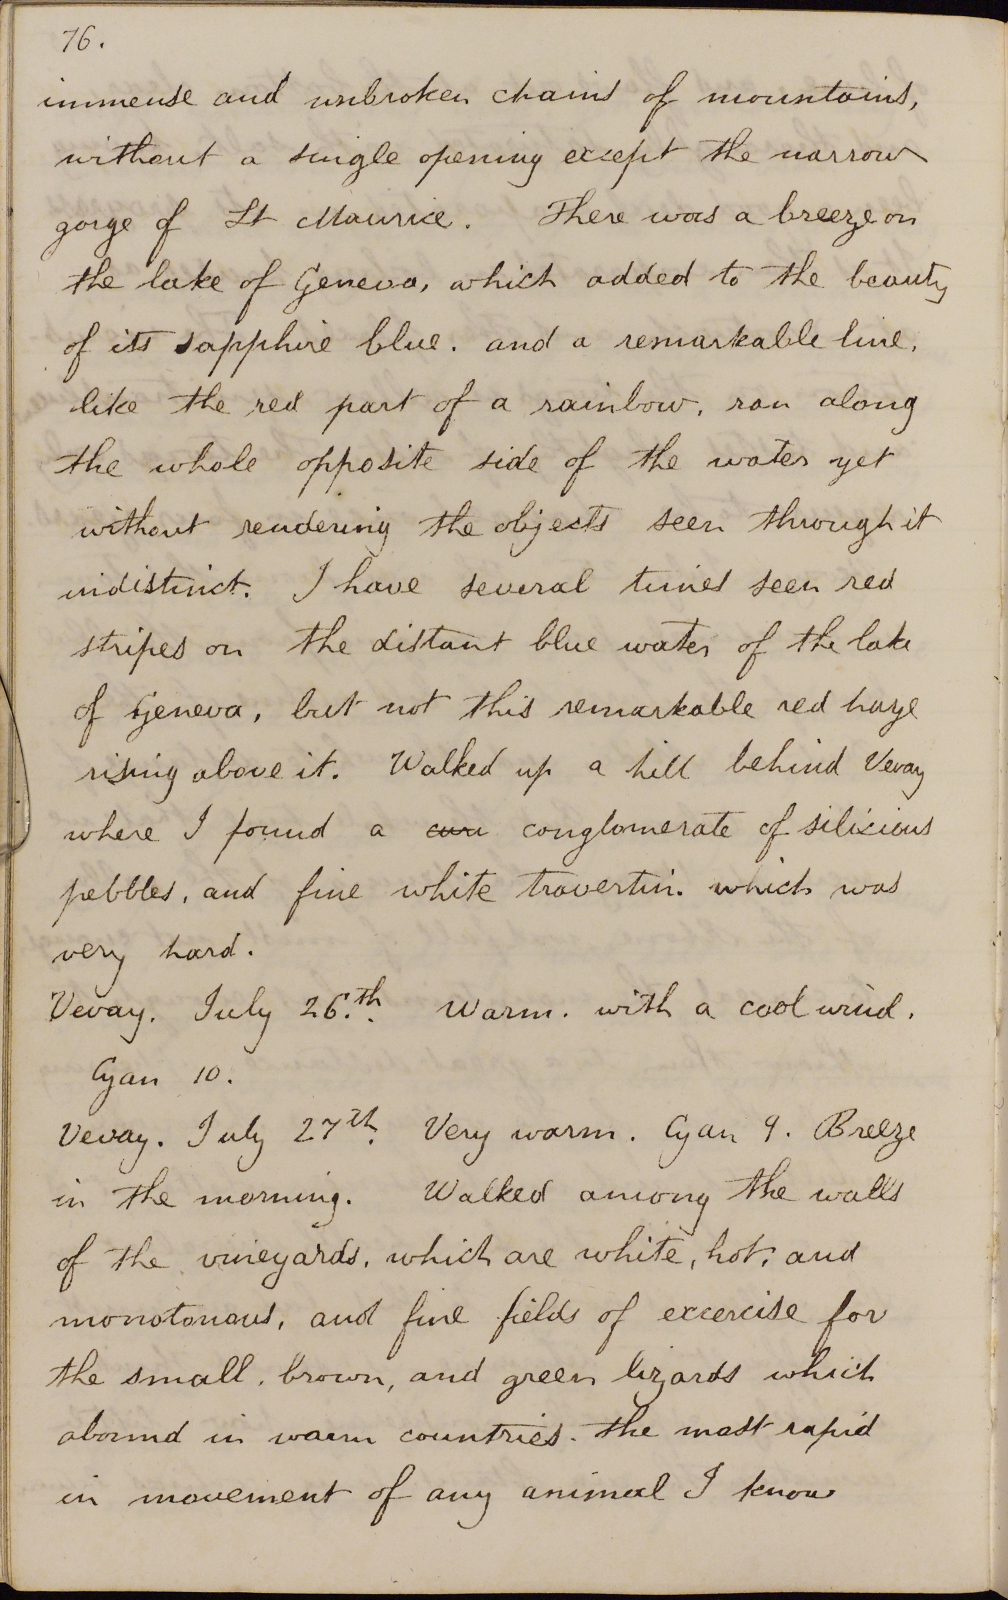 76.
immense and unbroken chains of mountains,
without a single opening except the narrow
gorge of St Maurice. There was a breeze on
the lake of Geneva, which added to the beauty
of its sapphire blue. and a remarkable line,
like the red part of a rainbow, ran along
the whole opposite side of the water yet
without rendering the objects seen through it
indistinct. I have several times seen red
stripes on the distant blue water of the lake
of Geneva, but not this remarkable red haze
rising above it. Walked up a hill behind Vevay
where I found a conglomerate of silicious
pebbles, and fine white travertin. which was
very hard.
Vevay. July 26.th. Warm. with a cool wind.
Cyan 10.
Vevay. July 27th. Very warm. Cyan 9. Breeze
in the morning. Walked among the walls
of the vineyards. which are white, hot, and
monotonous, and fine fields of excercise for
the small, brown, and green lizards which
abound in warm countries. the most rapid
in movement of any animal I know